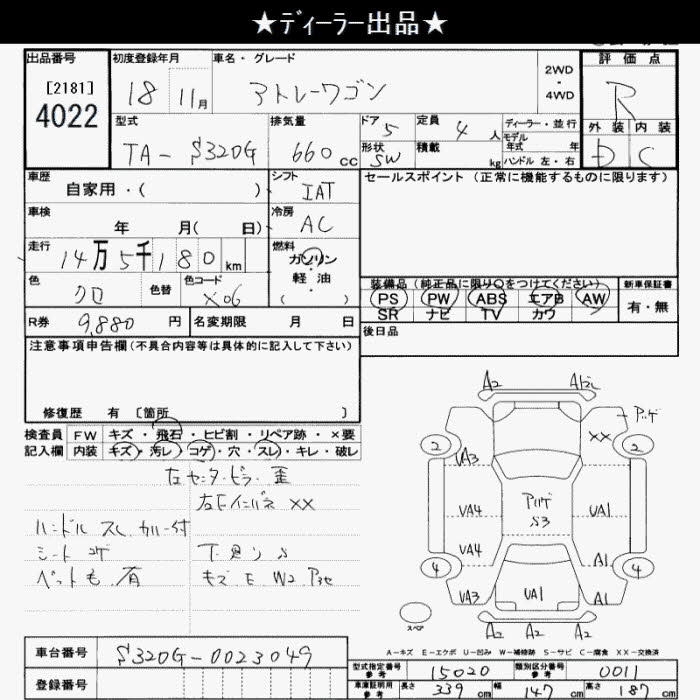 ★ディーラー出品★
出品番号 初度登録年月 車名・グレード 評価点
[2181] 18 11月 アトレーワゴン 2WD・4WD R
4022
型式 排気量 ドア 5 定員 4人 ディーラー・並行 外装 内装
TA-S320G 660cc 形状 SW 積載 kg モデル年式 年 D C
ハンドル 左・右
車歴 シフト セールスポイント(正常に機能するものに限ります)
自家用・( ) IAT
車検 冷房
年 月( 日) AC
走行 燃料
14万5千180km ガソリン・軽油・( )
色 色替 色コード 装備品(純正品に限り○をつけてください) 新車保証書
クロ X06 PS PW ABS エアB AW 有・無
SR ナビ TV カワ
R券 9,880円 名変期限 月 日 後日品
注意事項申告欄(不具合内容等は具体的に記入して下さい)
修復歴 有 〔箇所 〕
検査員 FW キズ・飛石・ヒビ割・リペア跡・×要
記入欄 内装 キズ・汚レ・コゲ・穴・スレ・キレ・破レ
左センターピラー歪
左Fインパネ XX
ハンドル スレ カバー付
シート コゲ 下廻り S
ペット毛 有 キズ E W2
A2 A1
XX
2 2
VA3
アゲ
VA4 S3 UA1
VA4 A1
4 4
VA3 UA1 A1
スペア A2 A2 A2
A-キズ E-エクボ U-凹み W-補修跡 S-サビ C-腐食 XX-交換済
車台番号 S320G-0023049
登録番号
型式指定番号 参考 15020 類別区分番号 参考 0011
車庫証明用 参考 長さ 339cm 幅 147cm 高さ 187cm